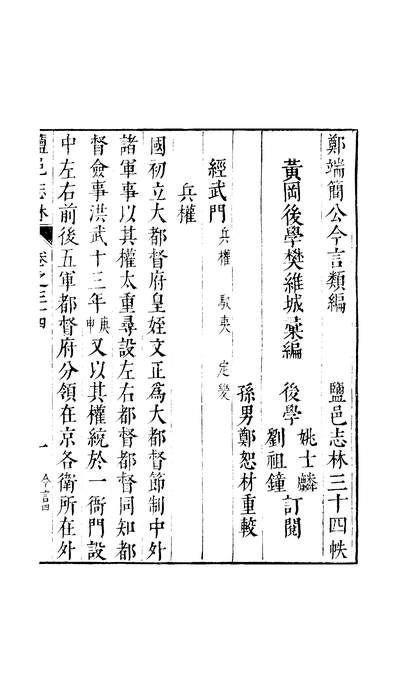 鄭端簡公今言類編　鹽邑志林三十四帙
黃岡後學樊維城彙編　後學
姚士麟
劉祖鐘
訂閱
孫男鄭恕材重較
經武門　兵權　馭夷　定變
兵權
國初立大都督府皇姪文正為大都督節制中外
諸軍事以其權太重尋設左右都督都督同知都
督僉事洪武十三年庚申又以其權統於一衙門設
中左右前後五軍都督府分領在京各衛所在外
鹽邑志林　卷之三十四　一　今言四